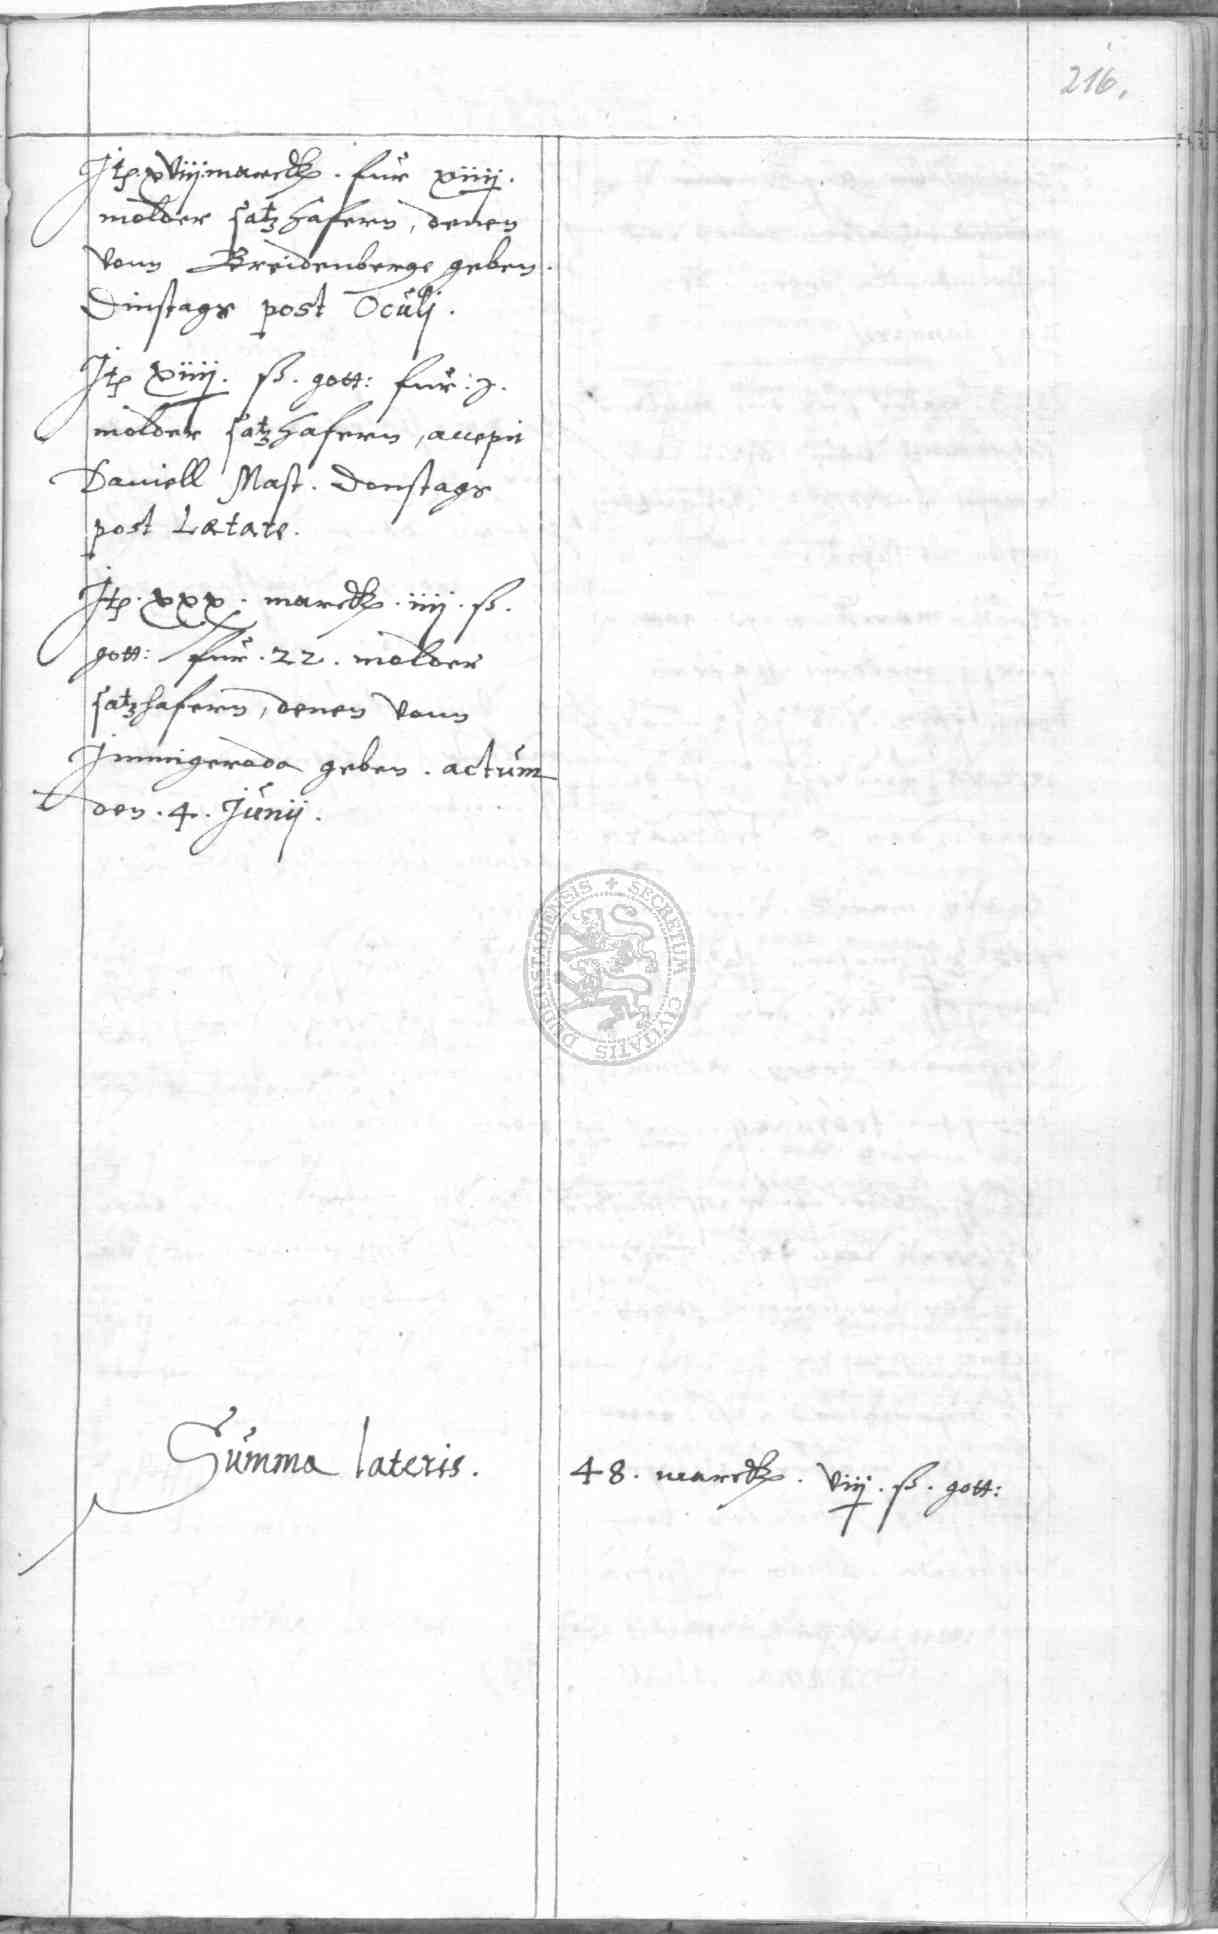 216.
Itē. xviij marck. fur xiiij.
molder satzhafern, denen
vonn Breidenberge geben.
Dinstags post Oculj.
Itē xiiij. ß. gott: fur .j.
molder satzhafern, accepit
Daniell Mast. Donstags
post Lætare.
Itē. xxx. marck. iiij. ß.
gott: fur .22. molder
satzhafern, denen vonn
Immigeroda geben. actum
den .4. Junij.
SECRETUM CIVITATIS DUDERSTADIENSIS
Summa lateris.
48. marck. viij. ß. gott: